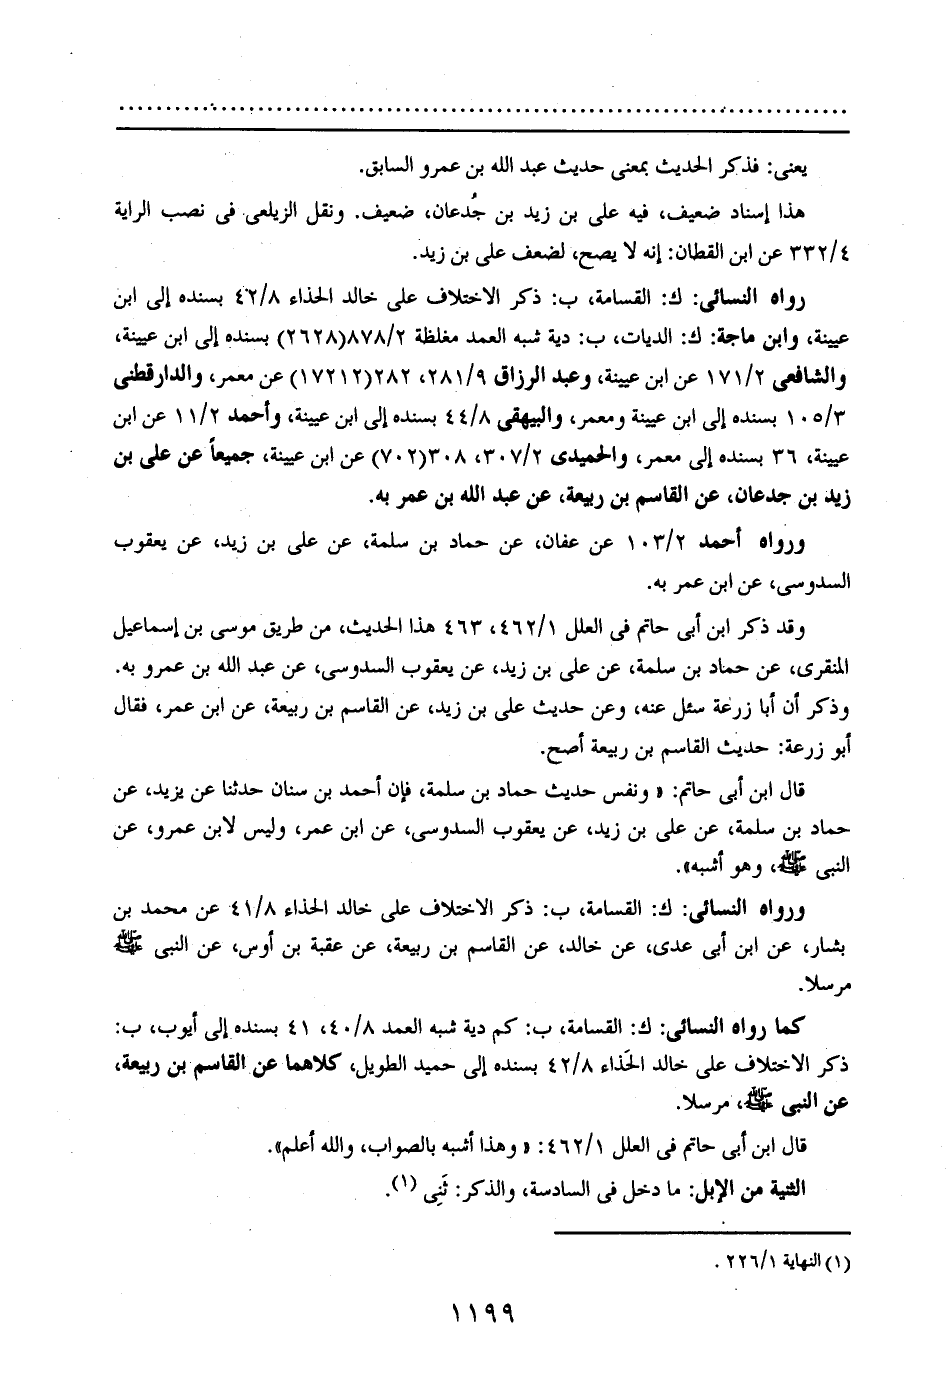 يعنى: فذكر الحديث بمعنى حديث عبد الله بن عمرو السابق.
هذا إسناد ضعيف، فيه على بن زيد بن جُدعان، ضعيف. ونقل الزيلعى فى نصب الراية
٣٣٢/٤ عن ابن القطان: إنه لا يصح، لضعف على بن زيد.
رواه النسائى: ك: القسامة، ب: ذكر الاختلاف على خالد الحذاء ٤٢/٨ بسنده إلى ابن
عيينة، وابن ماجة: ك: الديات، ب: دية شبه العمد مغلظة ٨٧٨/٢(٢٦٢٨) بسنده إلى ابن عيينة،
والشافعى ١٧١/٢ عن ابن عيينة، وعبد الرزاق ٢٨١/٩، ٢٨٢(١٧٢١٢) عن معمر، والدارقطنى
١٠٥/٣ بسنده إلى ابن عيينة ومعمر، والبيهقى ٤٤/٨ بسنده إلى ابن عيينة، وأحمد ١١/٢ عن ابن
عيينة، ٣٦ بسنده إلى معمر، والحميدى ٣٠٧/٢، ٣٠٨(٧٠٢) عن ابن عيينة، جميعاً عن على بن
زيد بن جدعان، عن القاسم بن ربيعة، عن عبد الله بن عمر به.
ورواه أحمد ١٠٣/٢ عن عفان، عن حماد بن سلمة، عن على بن زيد، عن يعقوب
السدوسى، عن ابن عمر به.
وقد ذكر ابن أبى حاتم فى العلل ٤٦٢/١، ٤٦٣ هذا الحديث، من طريق موسى بن إسماعيل
المنقرى، عن حماد بن سلمة، عن على بن زيد، عن يعقوب السدوسى، عن عبد الله بن عمرو به.
وذكر أن أبا زرعة سئل عنه، وعن حديث على بن زيد، عن القاسم بن ربيعة، عن ابن عمر، فقال
أبو زرعة: حديث القاسم بن ربيعة أصح.
قال ابن أبى حاتم: « ونفس حديث حماد بن سلمة، فإن أحمد بن سنان حدثنا عن يزيد، عن
حماد بن سلمة، عن على بن زيد، عن يعقوب السدوسى، عن ابن عمر، وليس لابن عمرو، عن
النبى ﷺ، وهو أشبه».
ورواه النسائى: ك: القسامة، ب: ذكر الاختلاف على خالد الحذاء ٤١/٨ عن محمد بن
بشار، عن ابن أبى عدى، عن خالد، عن القاسم بن ربيعة، عن عقبة بن أوس، عن النبى ﷺ
مرسلا.
كما رواه النسائى: ك: القسامة، ب: كم دية شبه العمد ٤٠/٨، ٤١ بسنده إلى أيوب، ب:
ذكر الاختلاف على خالد الحَذاء ٤٢/٨ بسنده إلى حميد الطويل، كلاهما عن القاسم بن ربيعة،
عن النبى ﷺ، مرسلا.
قال ابن أبى حاتم فى العلل ٤٦٢/١: « وهذا أشبه بالصواب، والله أعلم».
الثنية من الإبل: ما دخل فى السادسة، والذكر: ثَنِى (١).
(١) النهاية ٢٢٦/١ .
١١٩٩